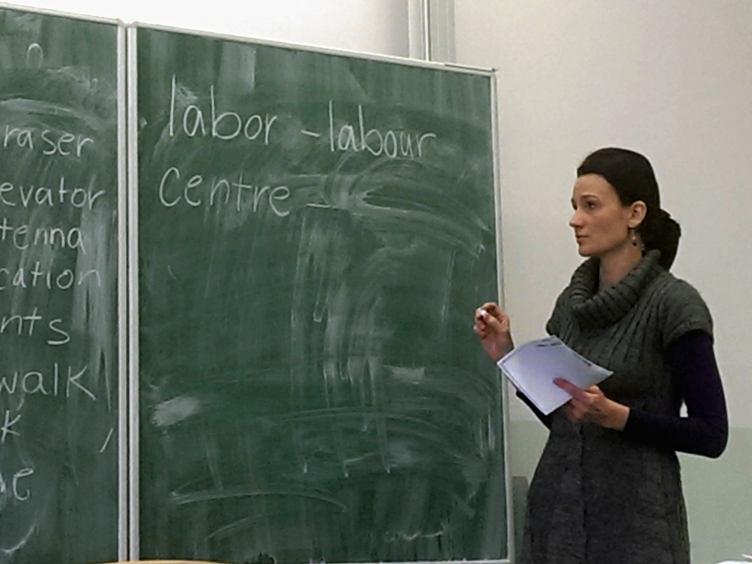 raser
evator
tenna
cation
nts
walk
k
labor - labour
centre -